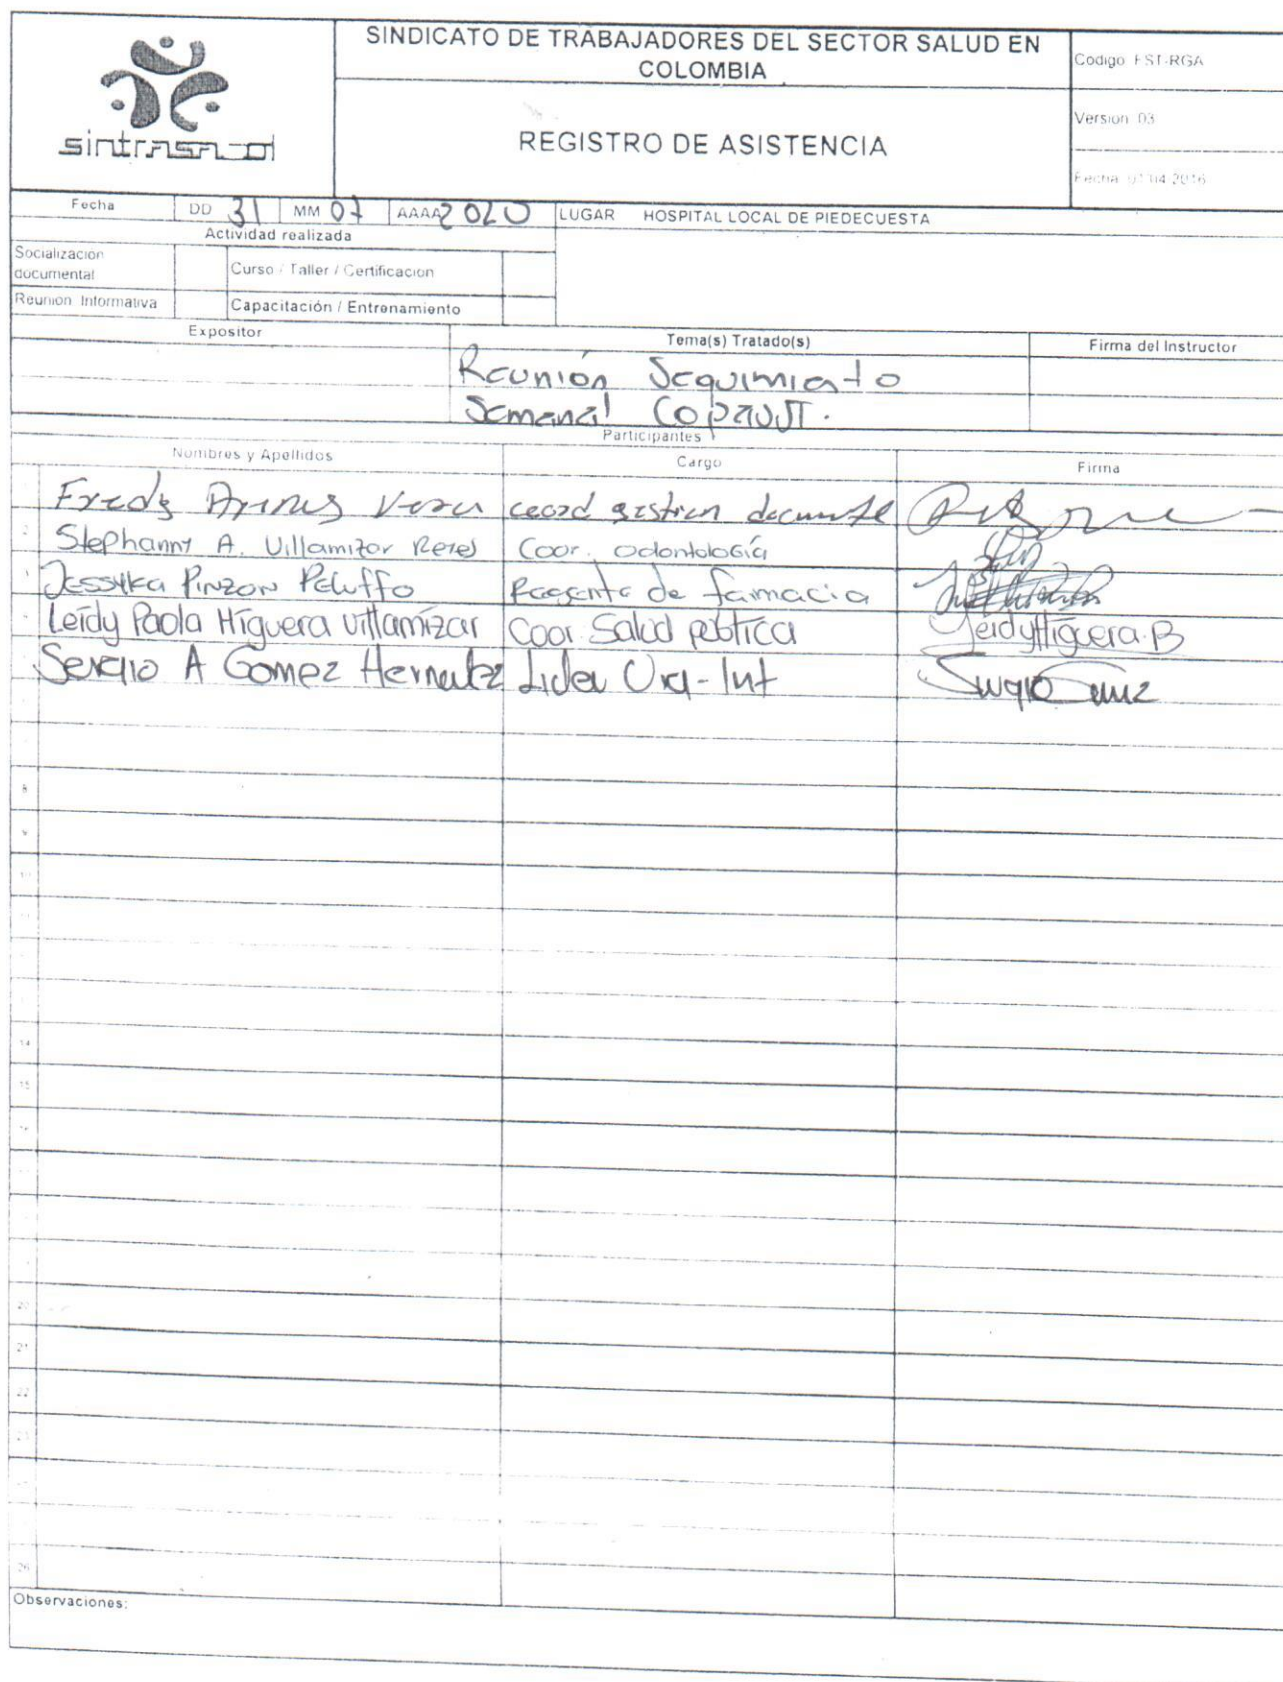 SINDICATO DE TRABAJADORES DEL SECTOR SALUD EN
COLOMBIA
REGISTRO DE ASISTENCIA
Codigo FST-RGA
Version 03
Fecha 01 04 2016
sintrasalud
Fecha DD 31 MM 07 AAAA 2020 LUGAR HOSPITAL LOCAL DE PIEDECUESTA
Actividad realizada
Socialización
documental
Curso / Taller / Certificacion
Reunion Informativa
Capacitación / Entrenamiento
Expositor Tema(s) Tratado(s) Firma del Instructor
Reunión Seguimiento
Semanal Copasst.
Participantes
Nombres y Apellidos Cargo Firma
Fredy Arenas Vera coord gestion
2 Stephanny A. Villamizar Coor. odontología
Jessyka Pinzon Peluffo Regente de farmacia
Leidy Paola Higuera Villamizar Coor Salud publica Leidy Higuera B
Sergio A Gomez Lider Urg-Int
8
9
10
11
14
15
20
21
22
23
26
Observaciones: